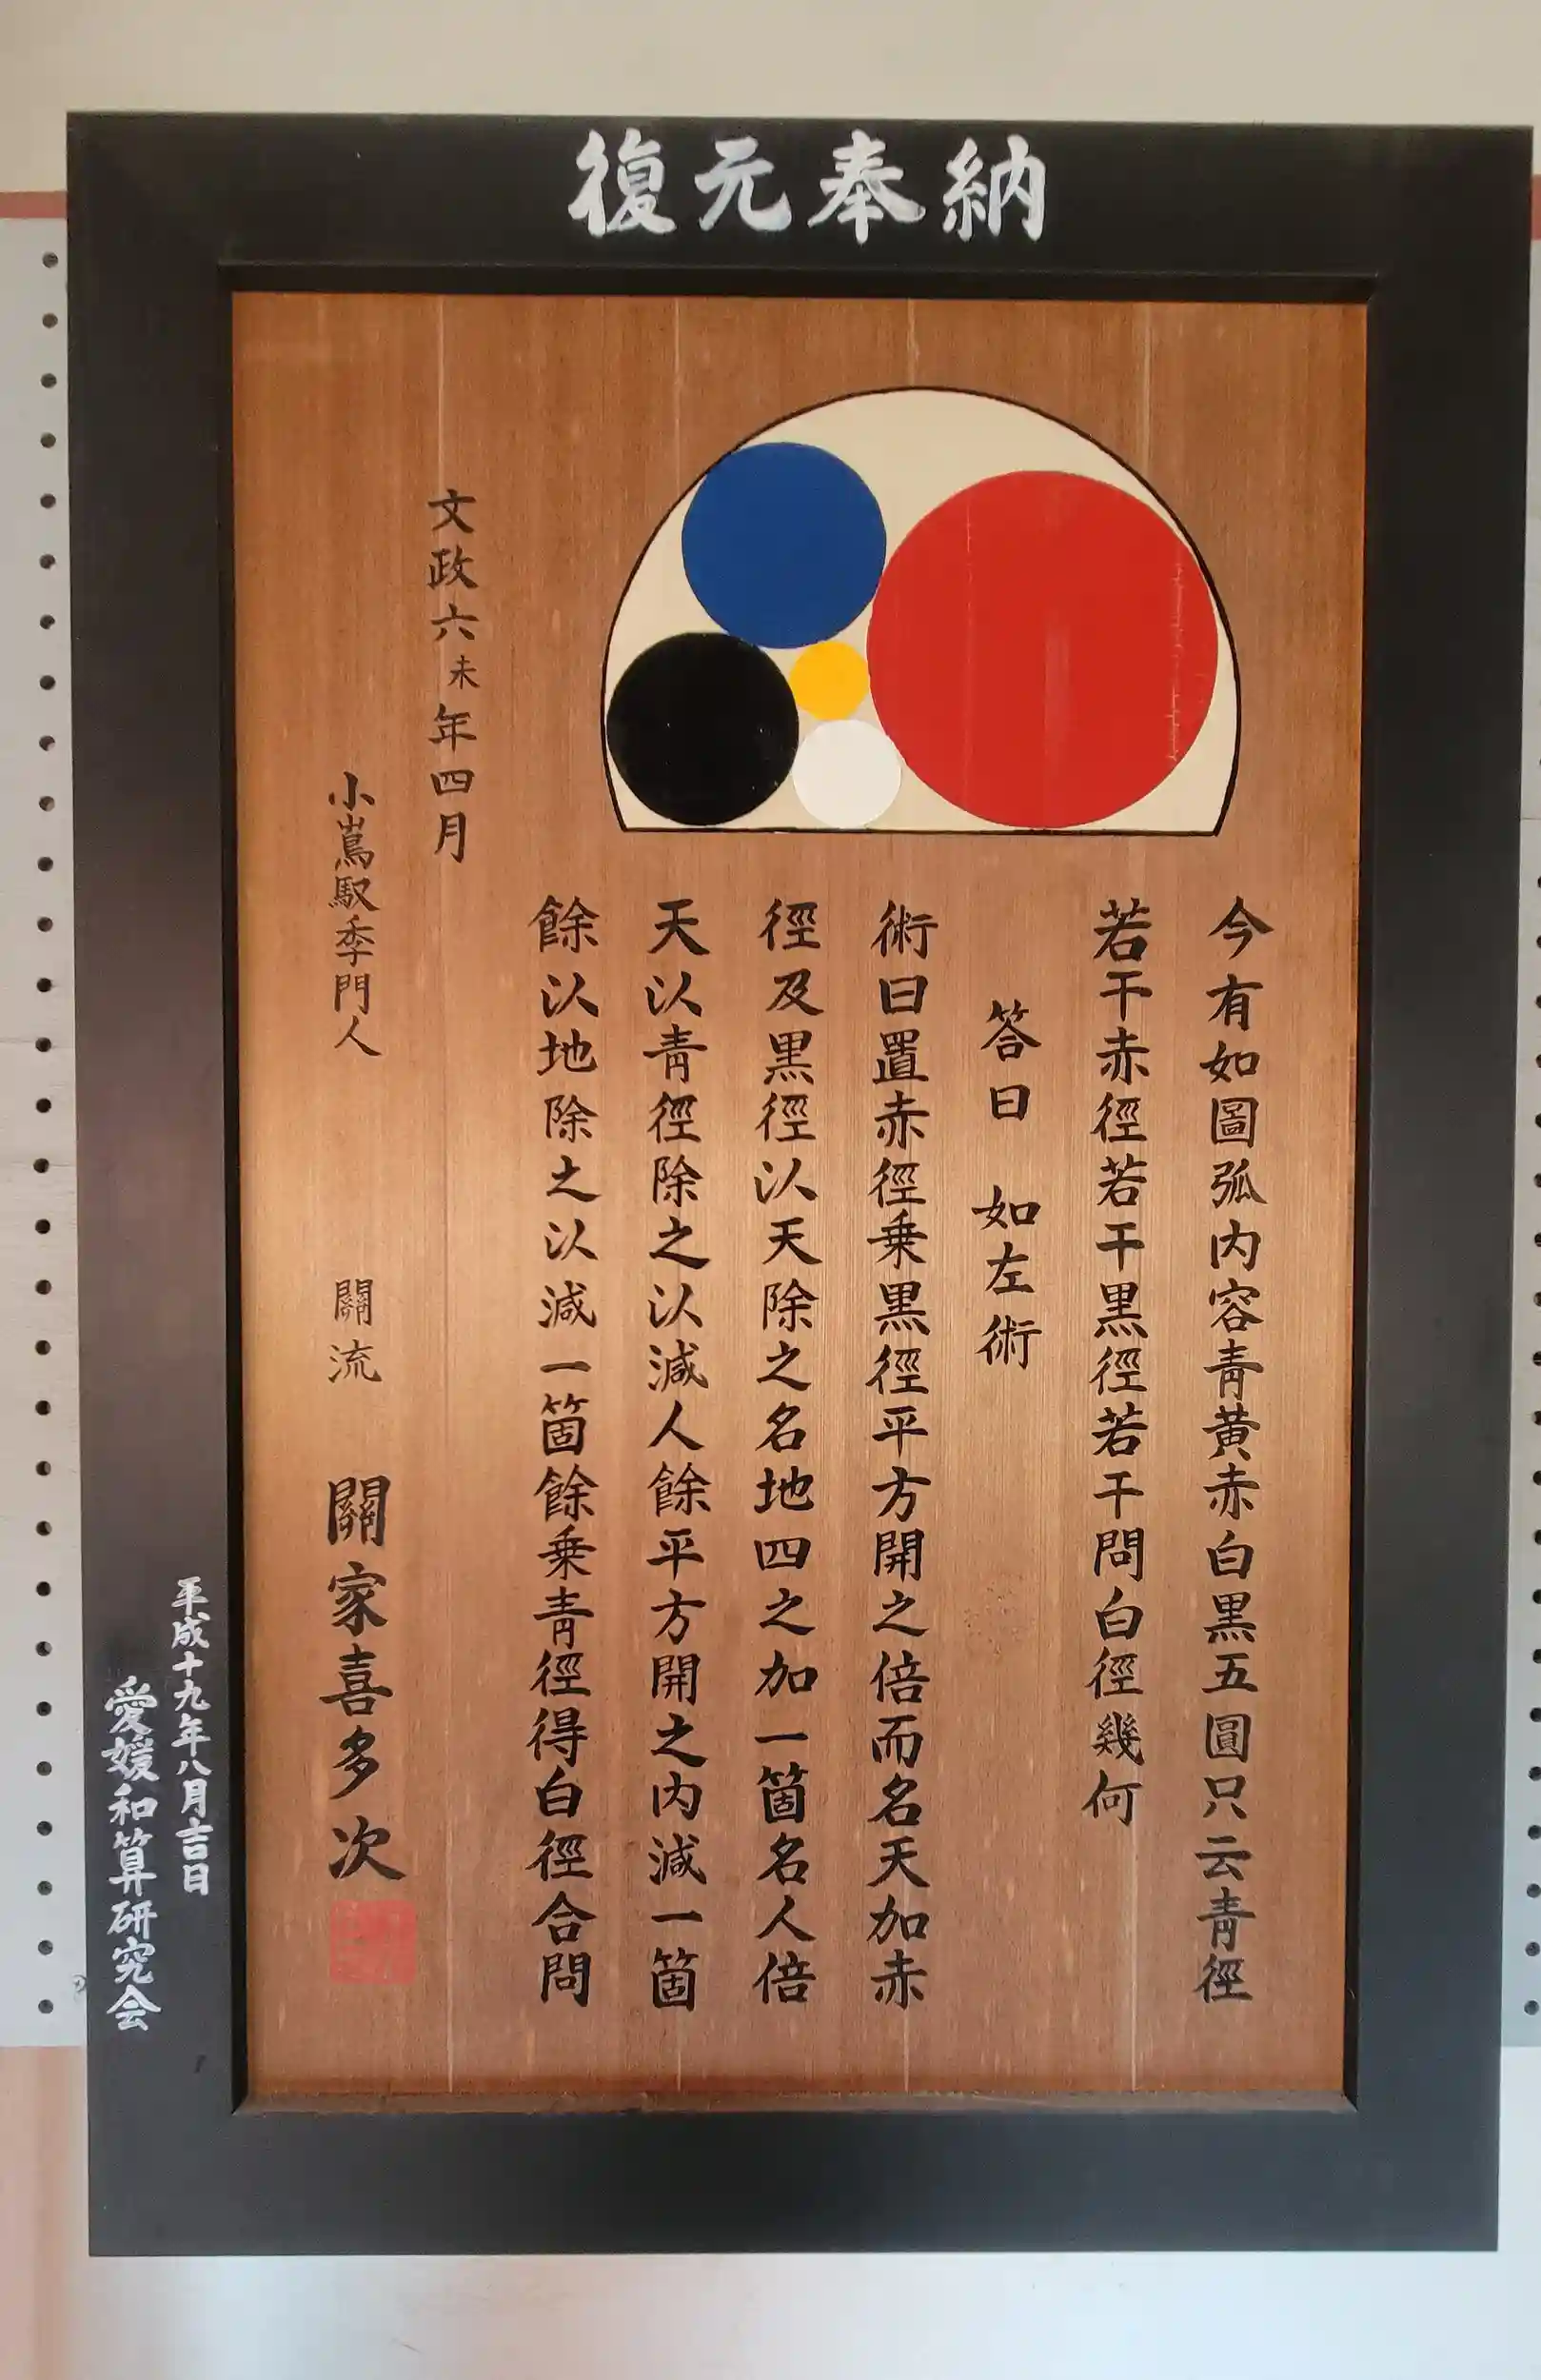 復元奉納
今有如圖弧内容青黄赤白黒五圓只云青徑
若干赤徑若干黒徑若干問白徑幾何
答曰 如左術
術曰置赤徑乗黒徑平方開之倍而名天加赤
徑及黒徑以天除之名地四之加一箇名人倍
天以青徑除之以減人餘平方開之内減一箇
餘以地除之以減一箇餘乗青徑得白徑合問
文政六未年四月
小嶌馭季門人 關流 關家喜多次
平成十九年八月吉日
愛媛和算研究会